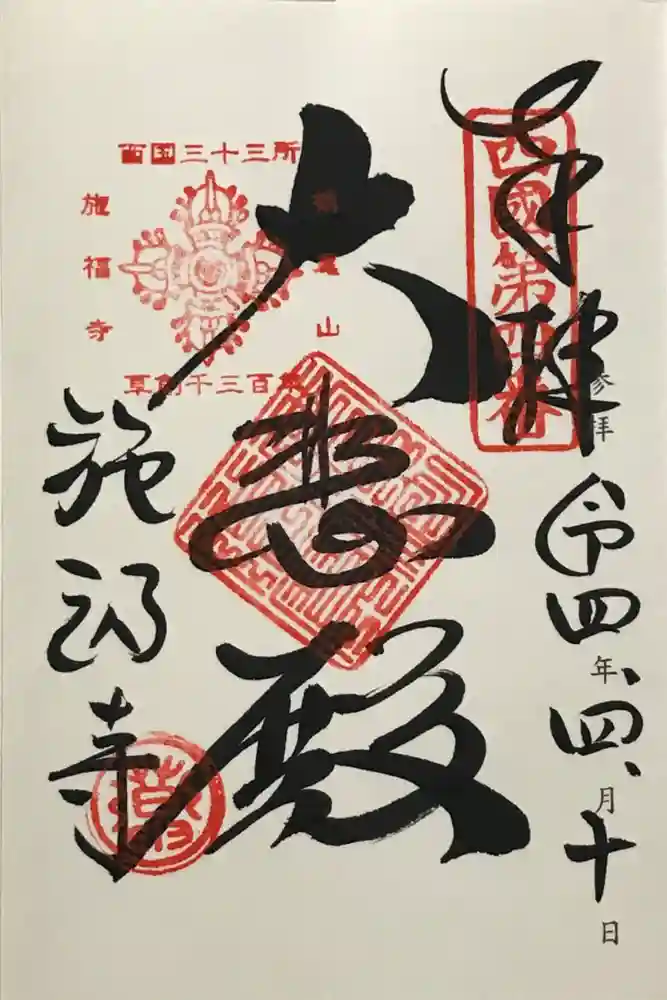 奉拝
西國第四番
参拝
令四年四月十日
大悲殿
西国三十三所
山
施福寺
草創千三百年
施福寺